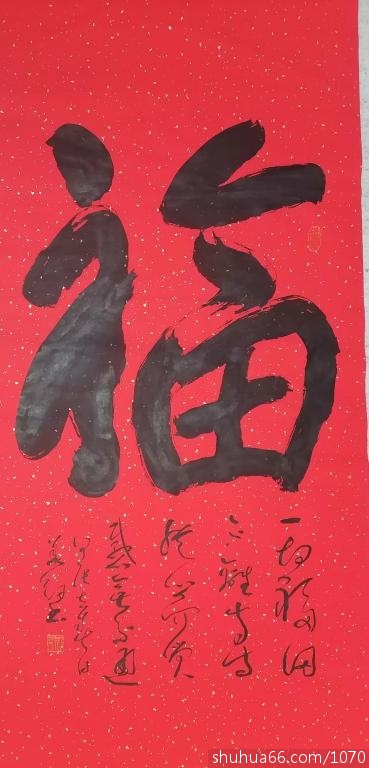 福
一切福田
不離方寸
從心而覓
感無不通
shuhua66.com/1070